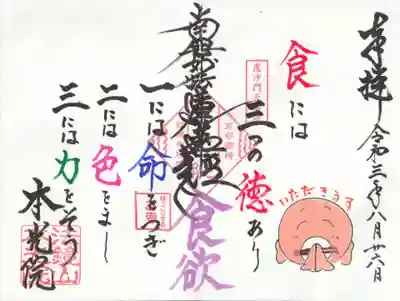 奉拝 令和三年八月廿六日
いただきます
食には
三つの徳あり
食欲
一には命をつぎ
二には色をまし
三には力をそう
本光院